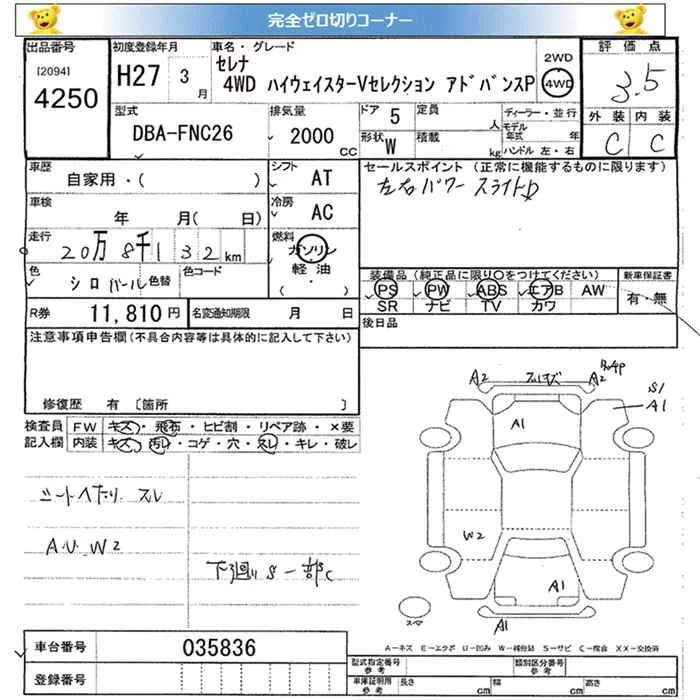 完全ゼロ切りコーナー
出品番号 [2094] 4250
初度登録年月 H27 3月
車名・グレード セレナ
4WD ハイウェイスターVセレクション アドバンスP
2WD
4WD
評価点 3.5
外装 内装
C C
型式 DBA-FNC26
排気量 2000 CC
ドア 5
定員 人
形状 W
積載 kg
ディーラー・並行
モデル年式 年
ハンドル 左・右
車歴 自家用・( )
シフト AT
車検 年 月( 日)
冷房 AC
走行 20万8千132km
燃料 ガソリン 軽油 (・)
色 シロパール 色替
色コード
R券 11,810円
名変通知期限 月 日
セールスポイント (正常に機能するものに限ります)
左右パワースライドD
装備品 (純正品に限り○をつけてください)
新車保証書
PS PW ABS エアB AW
有・無
SR ナビ TV カワ
後日品
注意事項申告欄(不具合内容等は具体的に記入して下さい)
修復歴 有 〔箇所 〕
検査員記入欄
FW キズ・飛石・ヒビ割・リペア跡・×要
内装 キズ・汚れ・コゲ・穴・スレ・キレ・破レ
シートヘたり スレ
A.U. W2
下廻り S 一部C
A2
A2
S1
A1
A1
W2
A1
A1
スペア
A-キズ E-エクボ U-凹み W-補修跡 S-サビ C-腐食 XX-交換済
車台番号 035836
登録番号
型式指定番号 参考
類別区分番号 参考
車庫証明用 参考
長さ cm
幅 cm
高さ cm